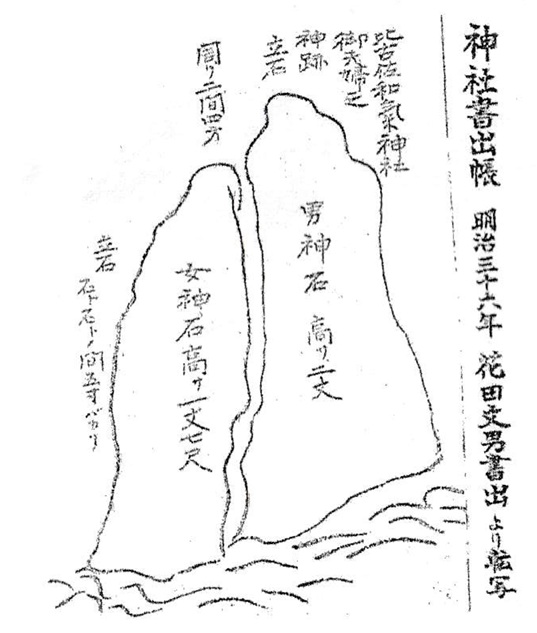 神社書出帳 明治三十六年 花田文男書出より転写
比古佐和氣神社
御夫婦之
神跡
立石
男神石 高サ二丈
周リ二間四方
女神石高サ一丈七尺
立石
石ト石トノ間五寸バカリ